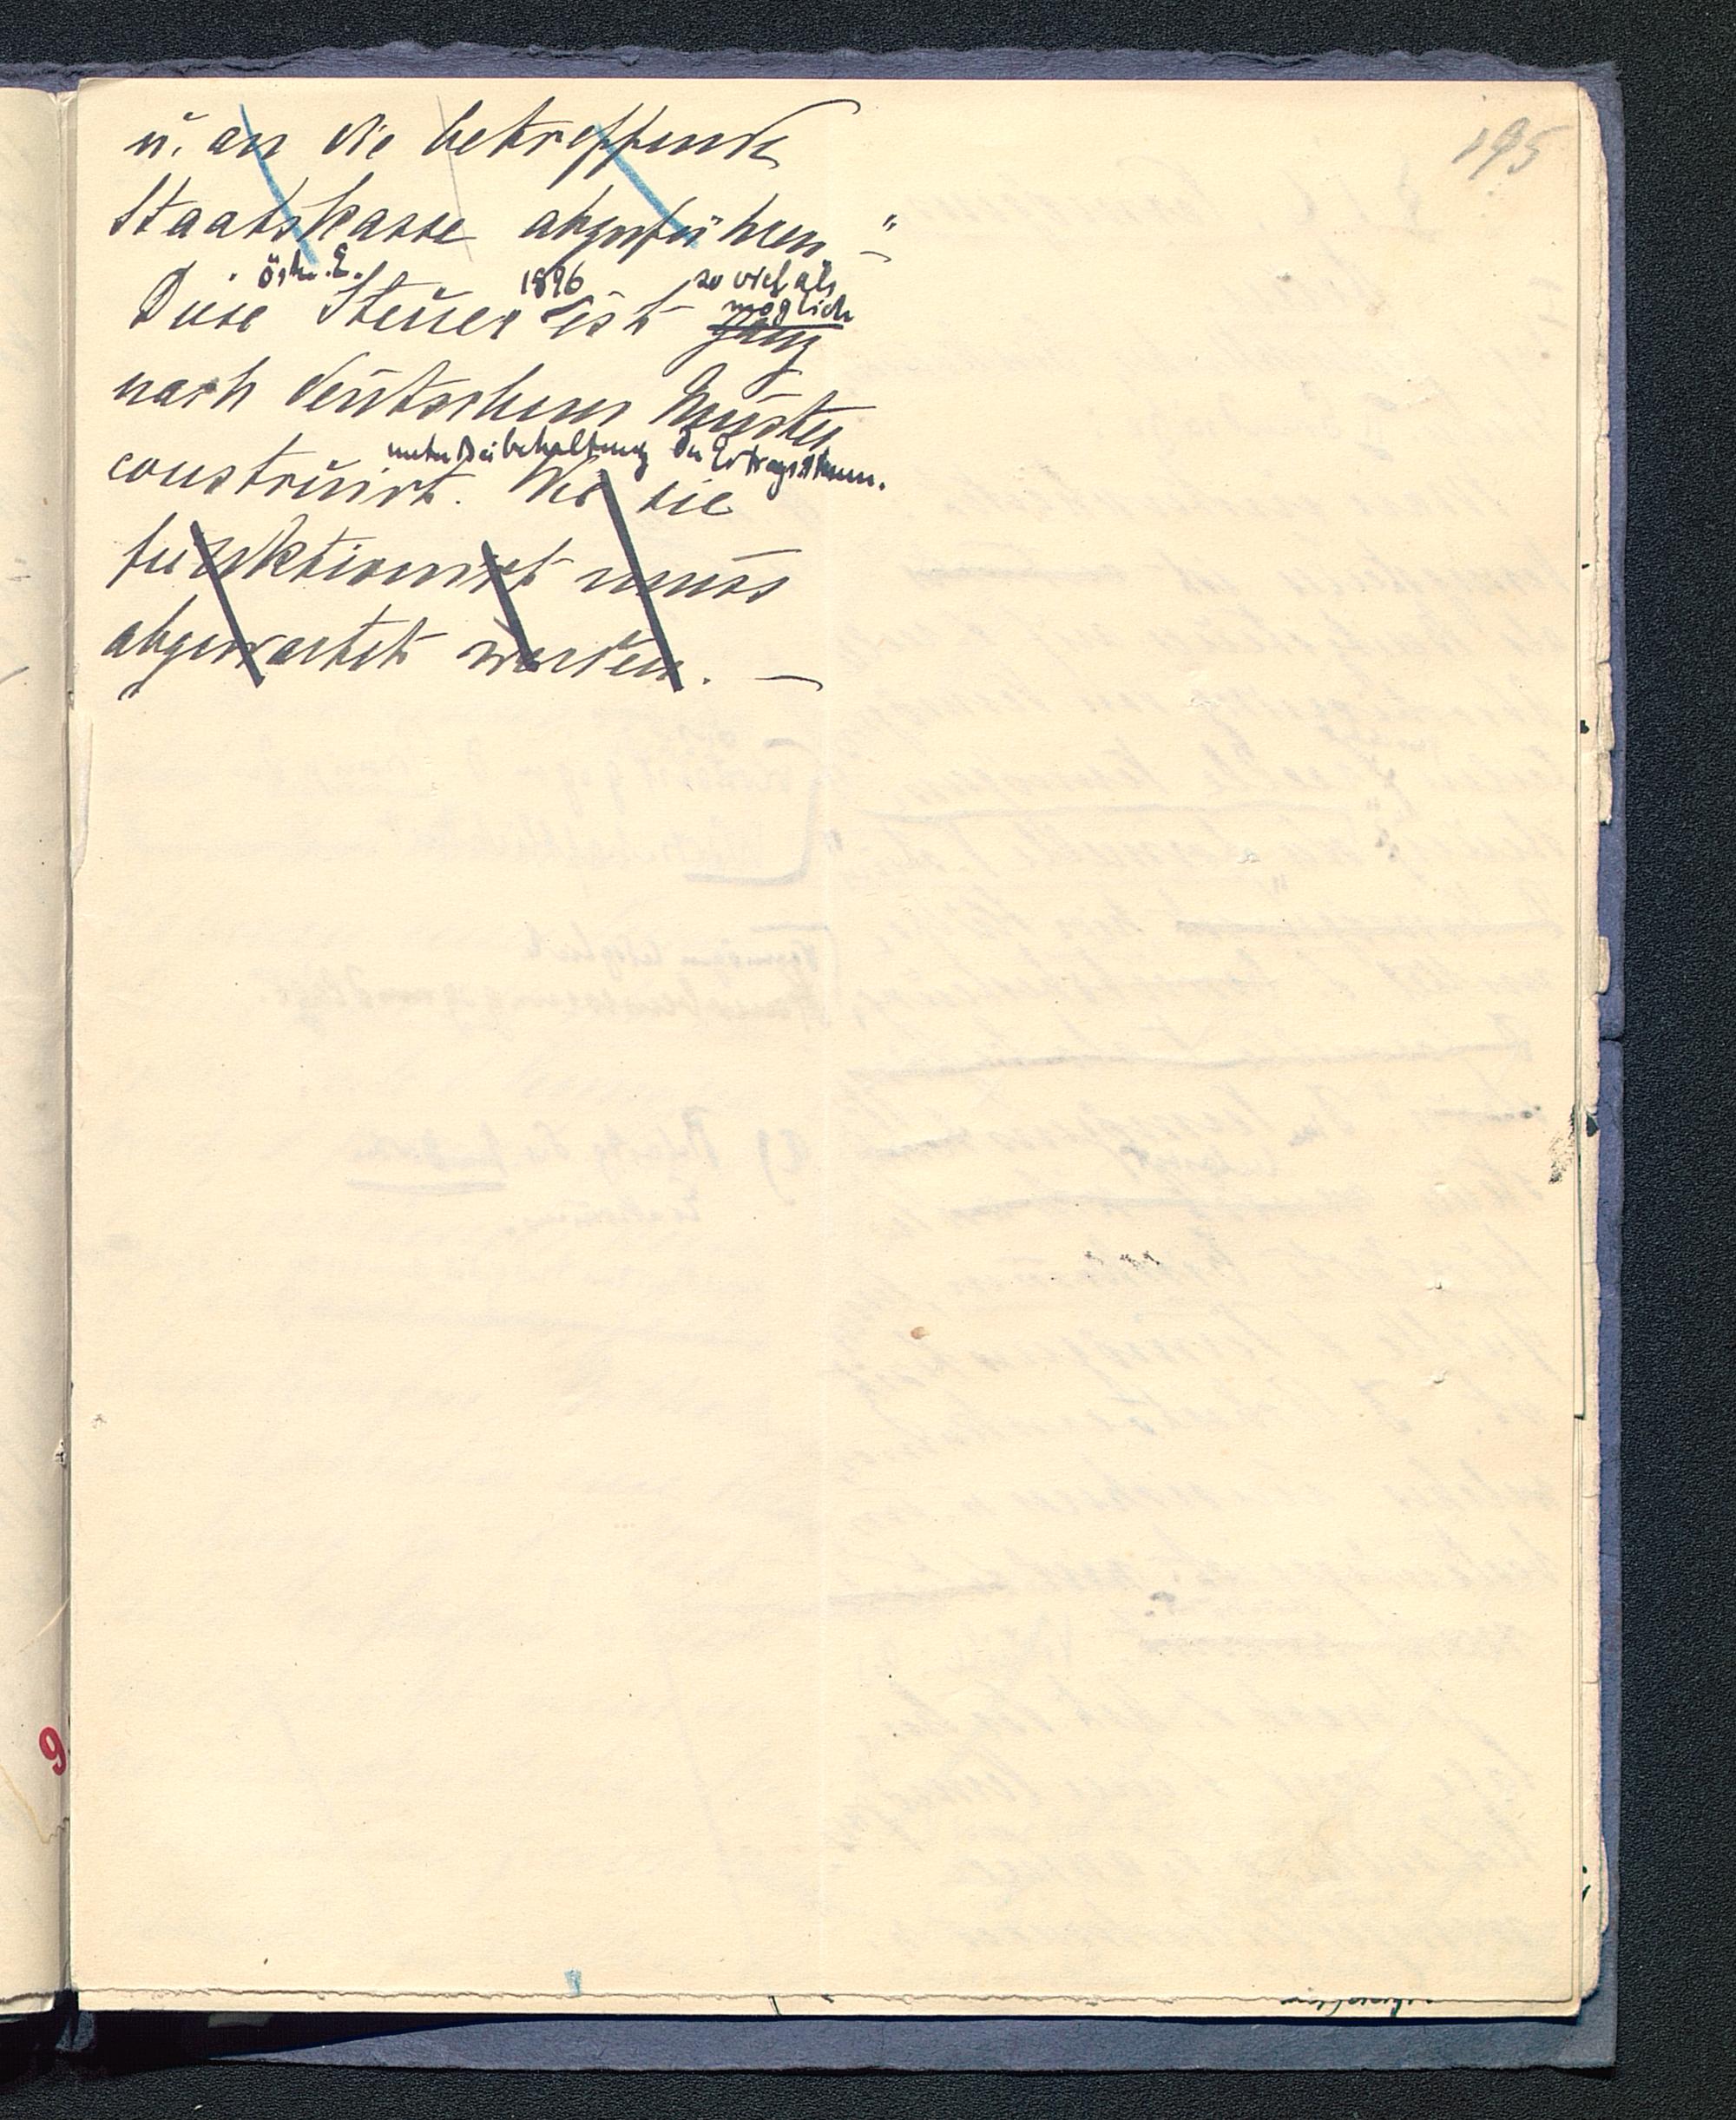 195
u. an die betreffende
Staatskasse abzuführen "
östr. E. 1896 so viel als
Diese Steuer ist ganz möglich
nach deutschem Muster
unter Beibehaltung der Ertragssteuern.
construirt. Wie sie
funktionirt muss
abgewartet werden. —
9